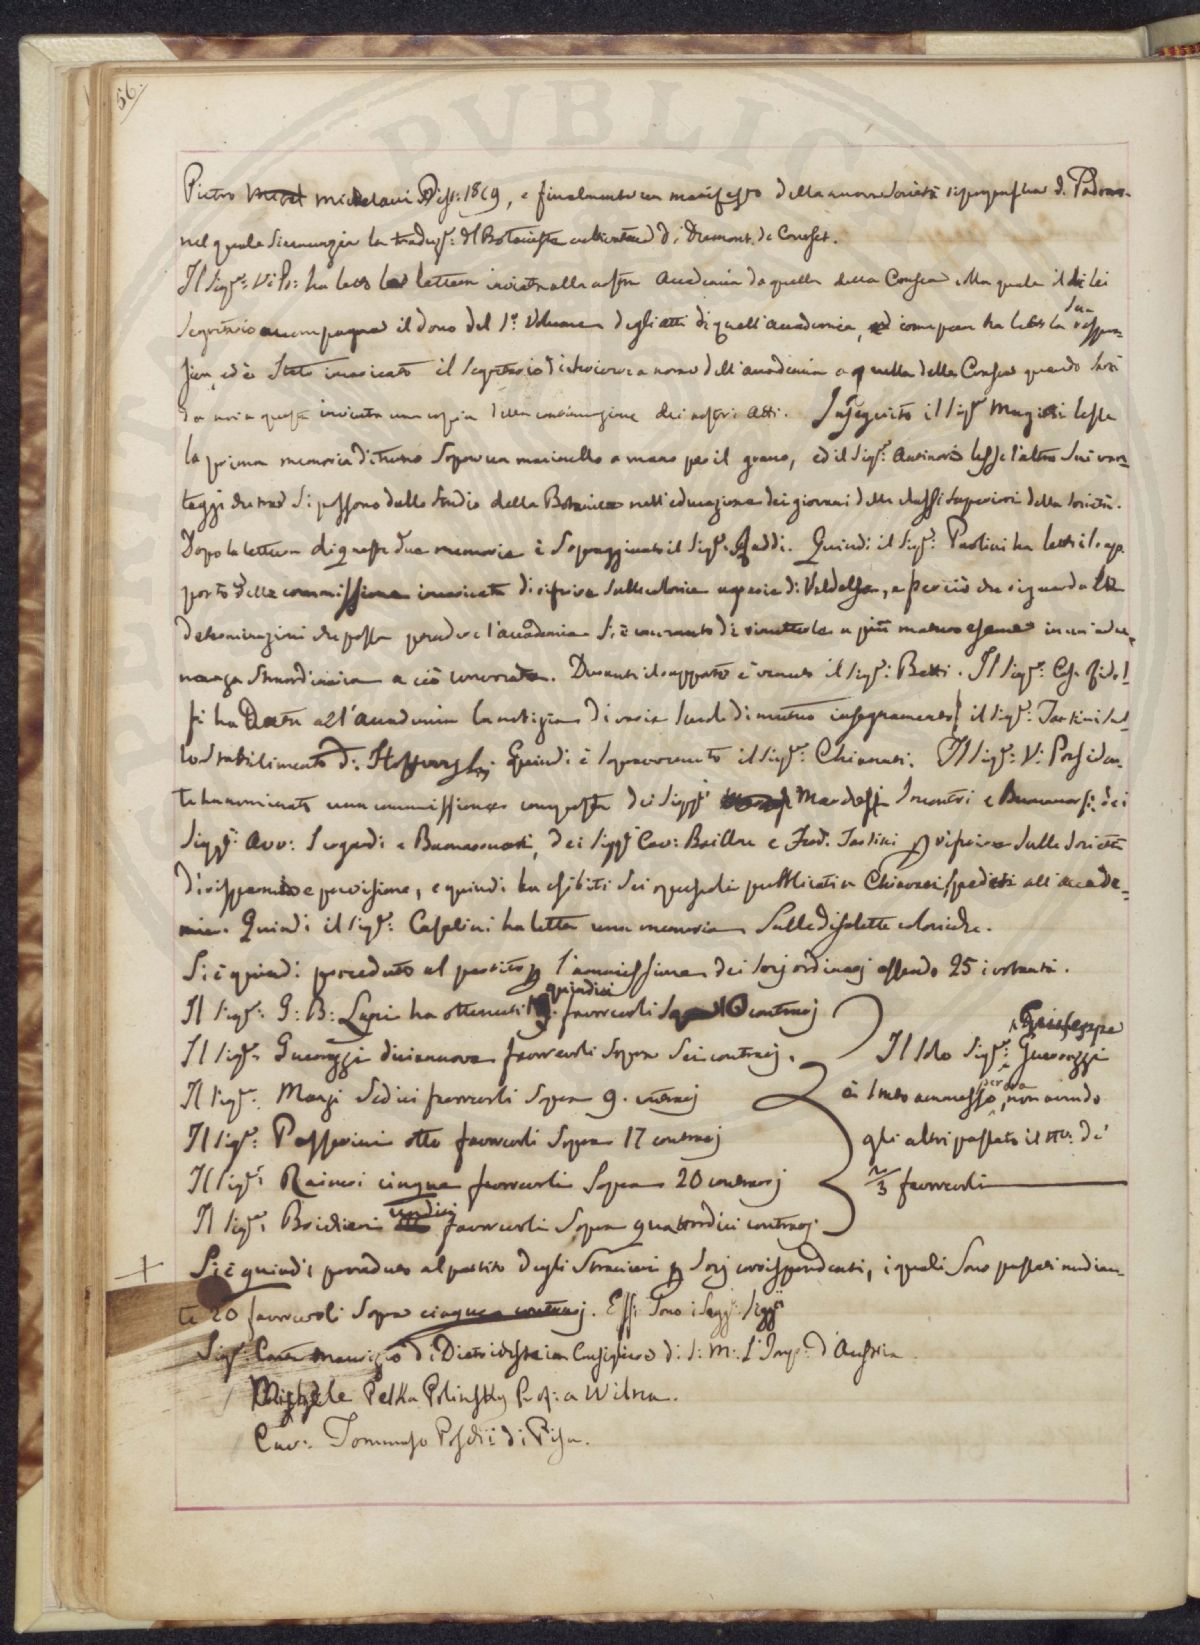 56.
PUBLIC
Pietro Michelacci Pisa: 1819, e finalmente un manifesto della nuova Società tipografica di Padova
nel quale si annunzia la traduz.e del Botanista coltivatore di Dumont de Courset.
Il Sig.r V: Pr: ha letto la lettera inviata alla nostra Accademia da quella della Crusca colla quale il di lei
Segretario accompagna il dono del 1.o Volume degli atti di quell'accademia, e come pure ha letto la sua rispo-
sta, ed è stato incaricato il Segretario di scrivere a nome dell'accademia a quella della Crusca quando sarà
da noi a questa inviata una copia della continuazione dei nostri Atti. In seguito il Sig.r lesse
la prima memoria di turno sopra un mulinello a mano per il grano, ed il Sig.r lesse l'altra sui van-
taggi che si possono dallo studio della Botanica nell'educazione dei giovani delle classi superiori della società.
Dopo la lettura di queste due memorie è sopraggiunto il Sig.r Raddi. Quindi il Sig.r Paolini ha letto il rap-
porto della commissione incaricata di riferire sulla colonia di Valdelsa, e perciò che riguarda le
determinazioni che possa prendere l'accademia si è convenuto di rimetterle a più maturo esame in un'adu-
nanza straordinaria a ciò convocata. Durante il rapporto è venuto il Sig.r Betti. Il Sig.r Ridol-
fi ha data all'accademia la notizia di varie scuole di mutuo insegnamento, il Sig.r Tartini sul-
lo stabilimento di Quindi è sopravvenuto il Sig.r Chiarenti. Il Sig.r V: Presiden-
te ha nominato una commissione composta dei Sigg.ri e dei
Sigg.ri Avv: e Buonarroti, dei Sigg.ri Cav: Baillou e Ferd. Tartini per riferire sulla Società
di risparmio e previsione, e quindi ha esibiti sei opuscoli pubblicati a Chiavari spediti all'accade-
mia. Quindi il Sig.r Capelini ha letta una memoria sulle disdette coloniche.
Si è quindi proceduto al partito per l'ammissione dei Socj ordinarj essendo 25 i votanti.
Il Sig.r G: B: Lapi ha ottenuti quindici favorevoli sopra 10 contrarj
Il Sig.r Guerrazzi diciannove favorevoli sopra sei contrarj.
Il Sig.r Manzi sedici favorevoli sopra 9. contrarj
Il Sig.r Passerini otto favorevoli sopra 17 contrarj
Il Sig.r Rainieri cinque favorevoli sopra 20 contrarj
Il Sig.r Bridieri undici favorevoli sopra quattordici contrarj.
Il solo Sig.r Giuseppe Guerrazzi
è stato ammesso per ora, non avendo
gli altri passato il n.o di
2/3 favorevoli
Si è quindi proceduto al partito degli stranieri per Socj corrispondenti, i quali sono passati median-
te 20 favorevoli sopra cinque contrarj. Essi sono i segg.i Sigg.ri
Sig.r Conte Maurizio di Dietrichstein Consigliere di S: M: L'Imp.e d'Austria
Michele Pelka Polinsky Prof: a Wilna.
Cav: Tommaso di Pisa.